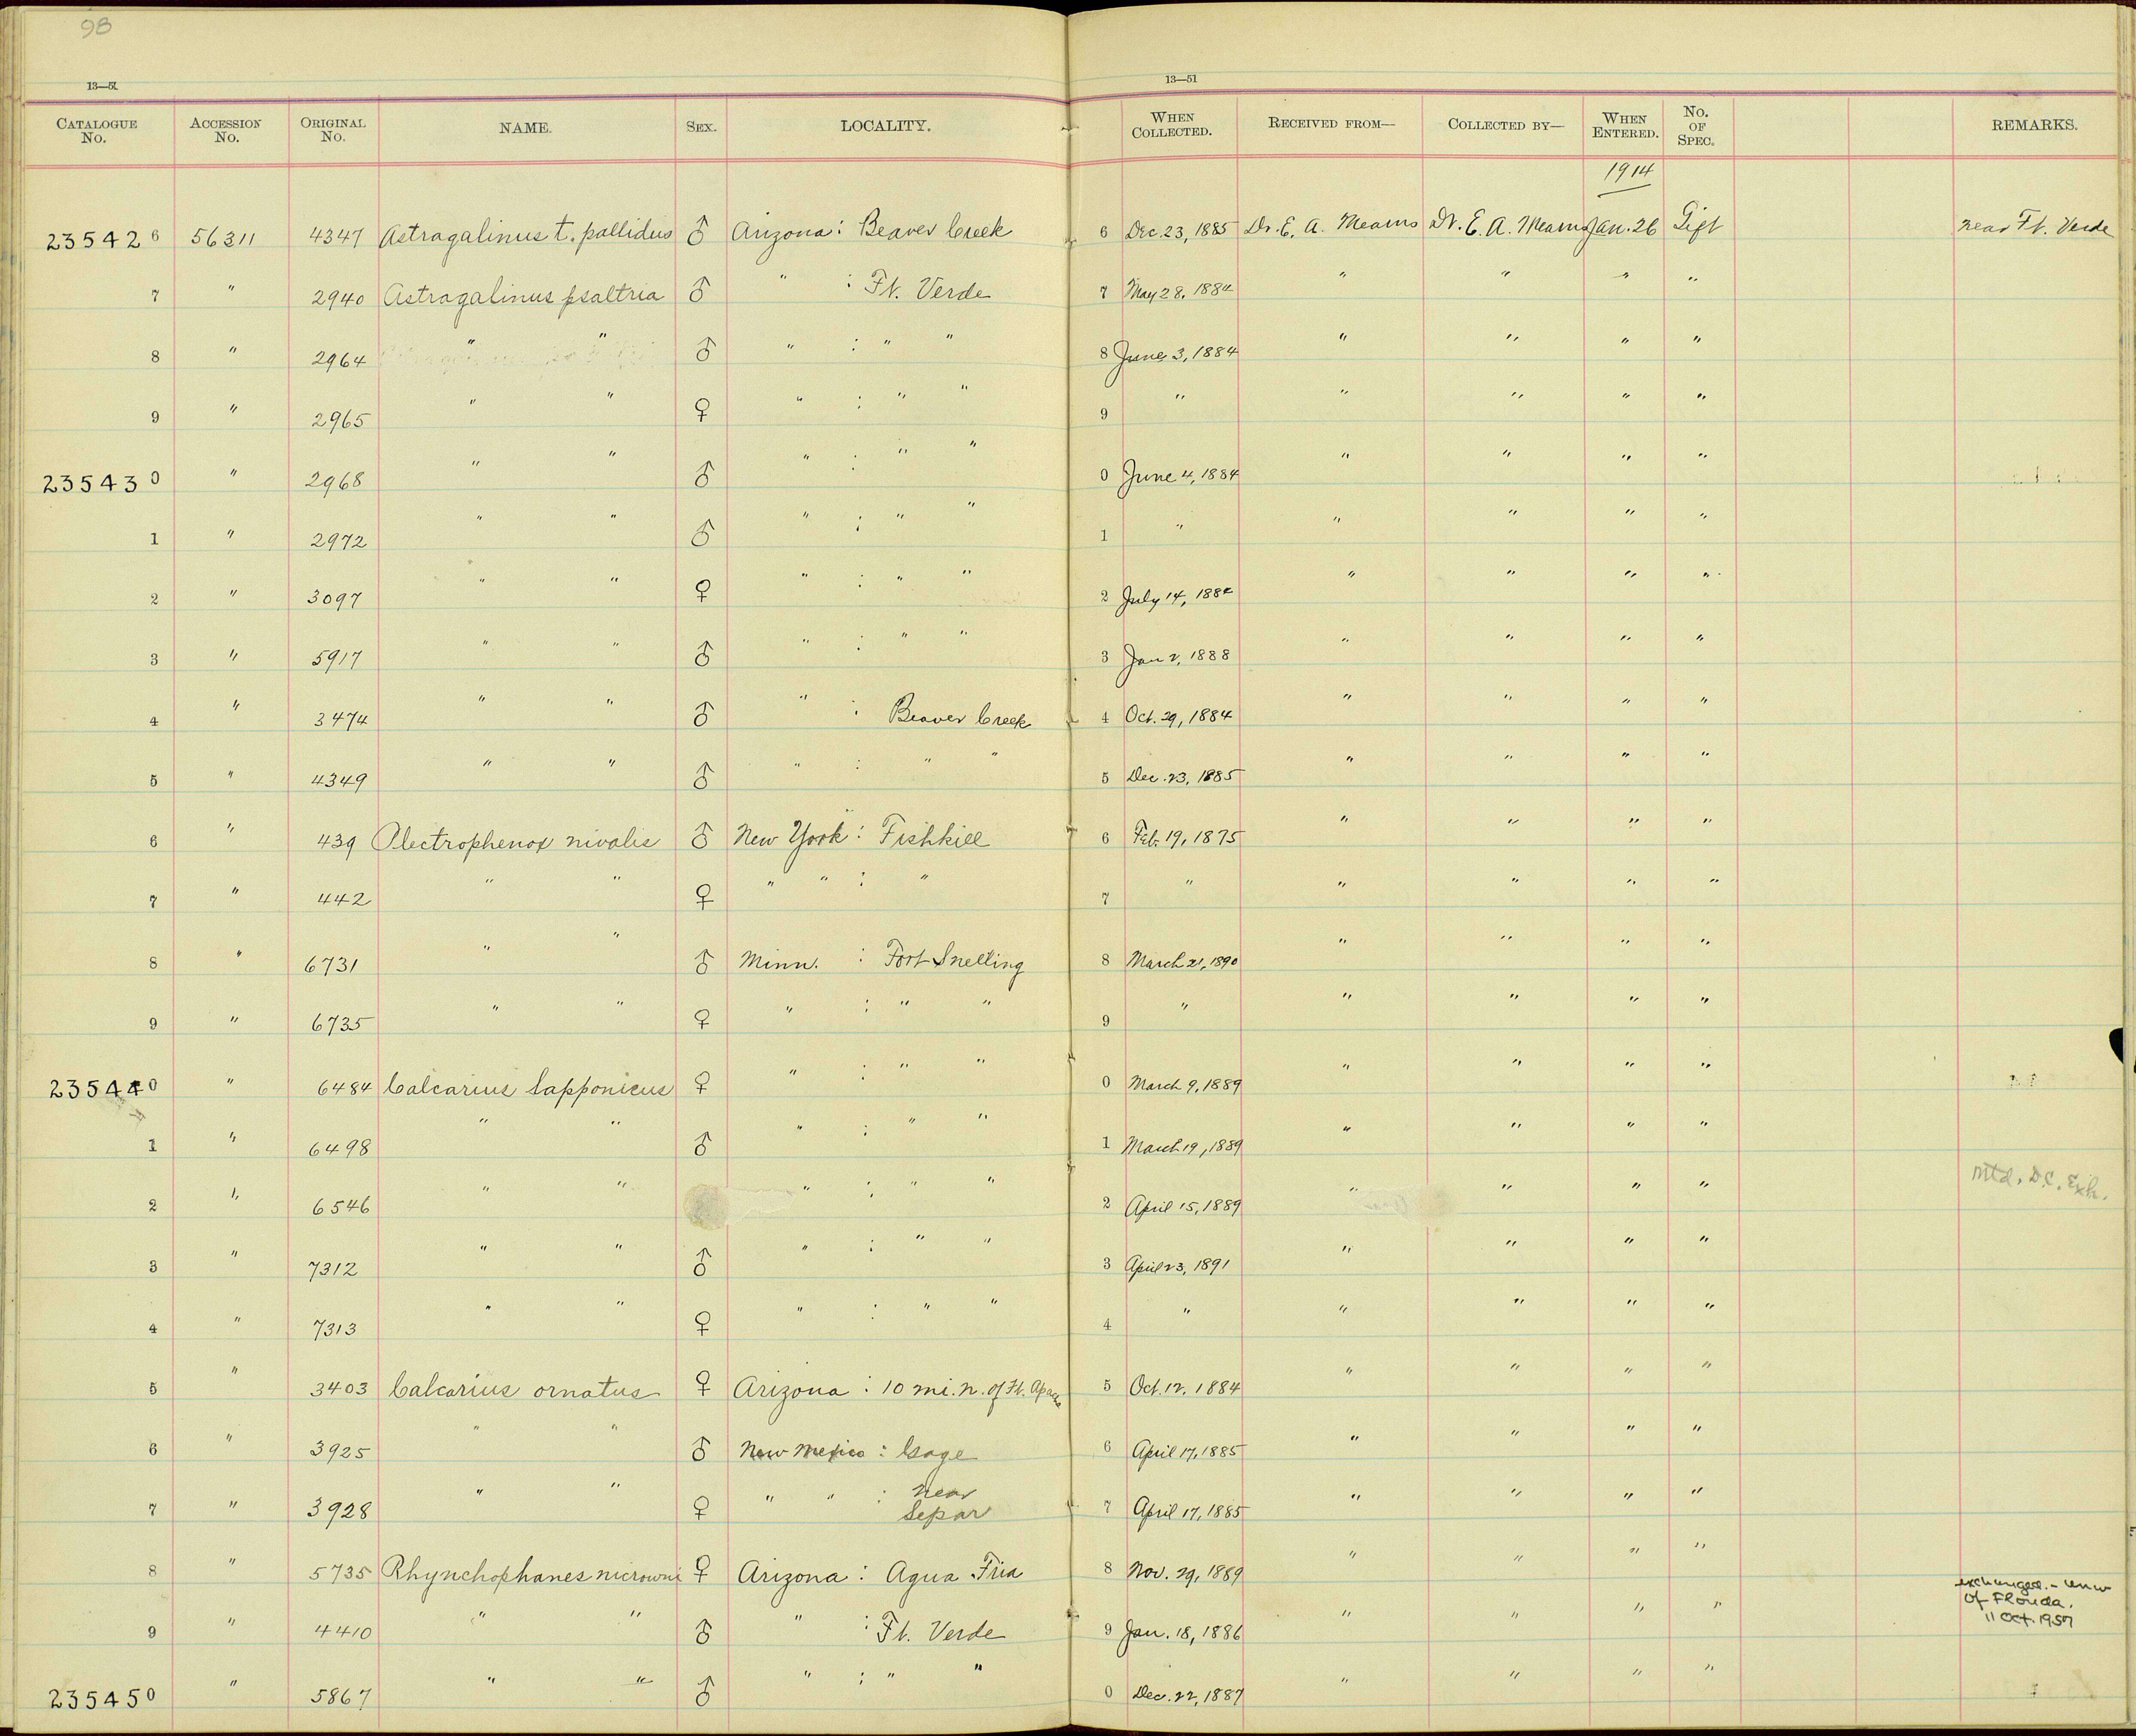 98
13—51
13—51
CATALOGUE No. ACCESSION No. ORIGINAL No. NAME. SEX. LOCALITY. WHEN COLLECTED. RECEIVED FROM— COLLECTED BY— WHEN ENTERED. No. OF SPEC. REMARKS.
1914
235426 56311 4347 Astragalinus t. pallidus ♂ Arizona : Beaver Creek 6 Dec. 23, 1885 Dr. E. A. Mearns Dr. E. A. Mearns Jan. 26 Gift near Ft. Verde
7 " 2940 Astragalinus psaltria ♂ " : Ft. Verde 7 May 28, 1884 " " " "
8 " 2964 " " ♂ " : " " 8 June 3, 1884 " " " "
9 " 2965 " " ♀ " : " " 9 " " " " "
235430 " 2968 " " ♂ " : " " 0 June 4, 1884 " " " "
1 " 2972 " " ♂ " : " " 1 " " " " "
2 " 3097 " " ♀ " : " " 2 July 14, 1884 " " " "
3 " 5917 " " ♂ " : " " 3 Jan 2, 1888 " " " "
4 " 3474 " " ♂ " : Beaver Creek 4 Oct. 29, 1884 " " " "
5 " 4349 " " ♂ " : " " 5 Dec. 23, 1885 " " " "
6 " 439 Plectrophenax nivalis ♂ New York : Fishkill 6 Feb. 19, 1875 " " " "
7 " 442 " " ♀ " " : " 7 " " " " "
8 " 6731 " " ♂ Minn. : Fort Snelling 8 March 21, 1890 " " " "
9 " 6735 " " ♀ " : " " 9 " " " " "
235440 " 6484 Calcarius lapponicus ♀ " : " " 0 March 9, 1889 " " " "
1 " 6498 " " ♂ " : " " 1 March 19, 1889 " " " "
2 " 6546 " " " : " " 2 April 15, 1889 " " " " Mtd. D.C. Exh.
3 " 7312 " " ♂ " : " " 3 April 23, 1891 " " " "
4 " 7313 " " ♀ " : " " 4 " " " " "
5 " 3403 Calcarius ornatus ♀ Arizona : 10 mi. n. of Ft. Apache 5 Oct. 12, 1884 " " " "
6 " 3925 " " ♂ New Mexico : Gage 6 April 17, 1885 " " " "
7 " 3928 " " ♀ " " : near Separ 7 April 17, 1885 " " " "
8 " 5735 Rhynchophanes mccowni ♀ Arizona : Agua Fria 8 Nov. 29, 1889 " " " "
9 " 4410 " " ♂ " : Ft. Verde 9 Jan. 18, 1886 " " " " exchanged. - Univ
of Florida.
11 Oct. 1957
235450 " 5867 " " ♂ " : " " 0 Dec. 22, 1887 " " " "